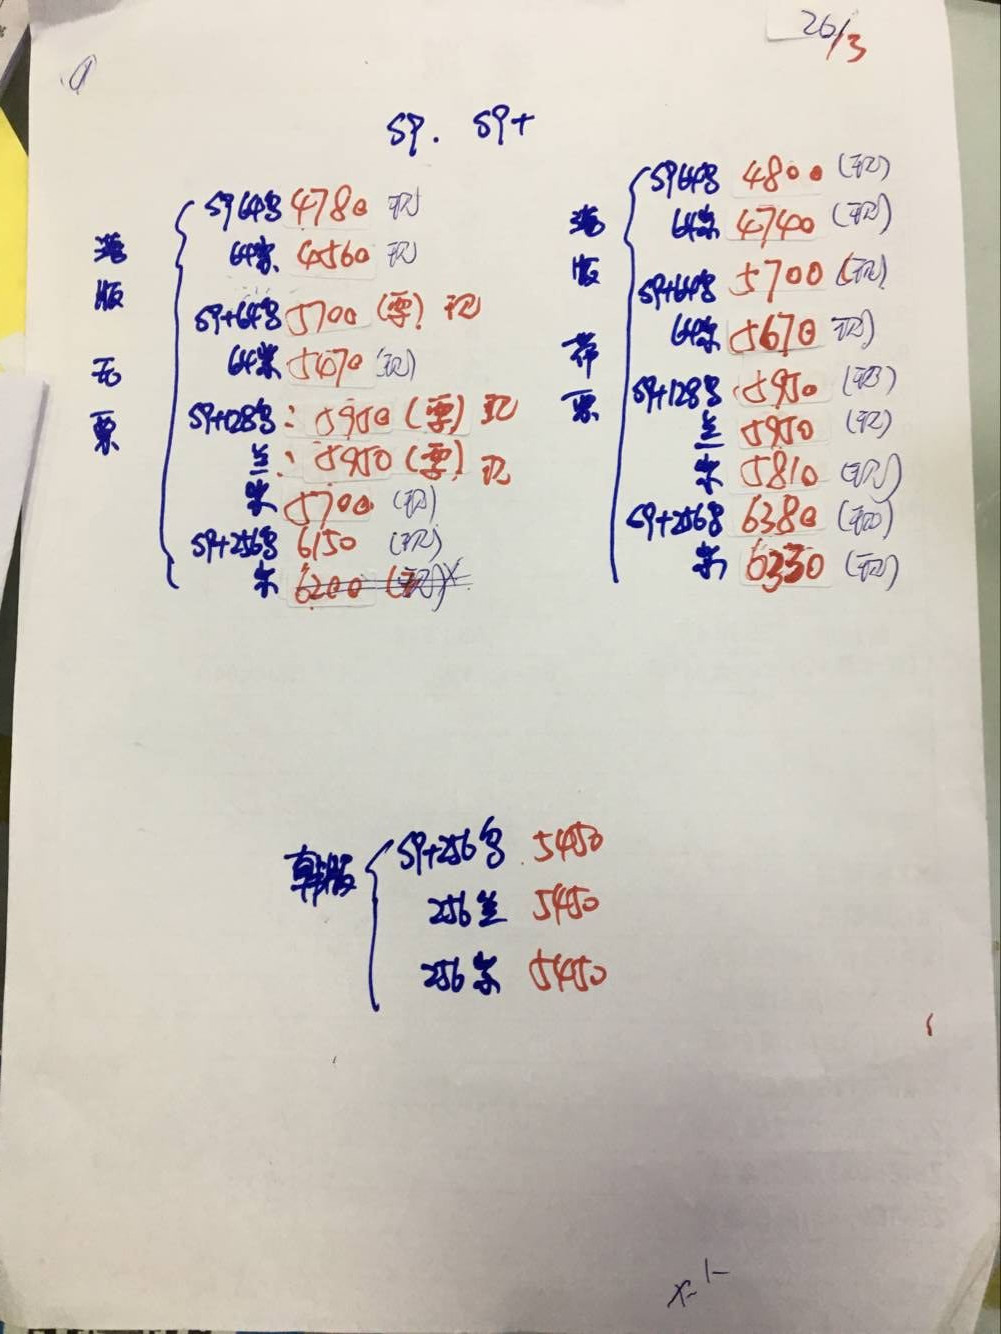 26/3
S9. S9+
港版无票
S9 64G 4780 现
64紫 4560 现
S9+64G 5700 (票) 现
64紫 5470 (现)
S9+128G: 5950 (票) 现
兰: 5950 (票) 现
紫 5700 (现)
S9+256G 6150 (现)
紫 6200 (现)
港版带票
S9 64G 4800 (现)
64紫 4740 (现)
S9+64G 5700 (现)
64紫 5670 (现)
S9+128G 5950 (现)
兰 5950 (现)
紫 5810 (现)
S9+256G 6380 (现)
紫 6330 (现)
韩版
S9+256G 5450
256兰 5450
256紫 5450